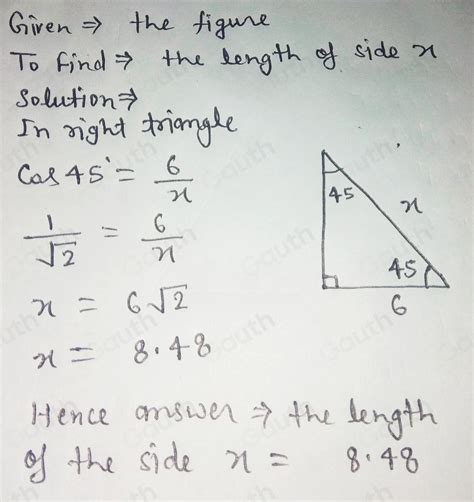 Given ⇒ the figure
To find ⇒ the length of side x
Solution ⇒
In right triangle
Cos 45° = 6/x
1/√2 = 6/x
x = 6√2
x = 8.48
Hence answer ⇒ the length
of the side x = 8.48
45
x
45
6
Gauth